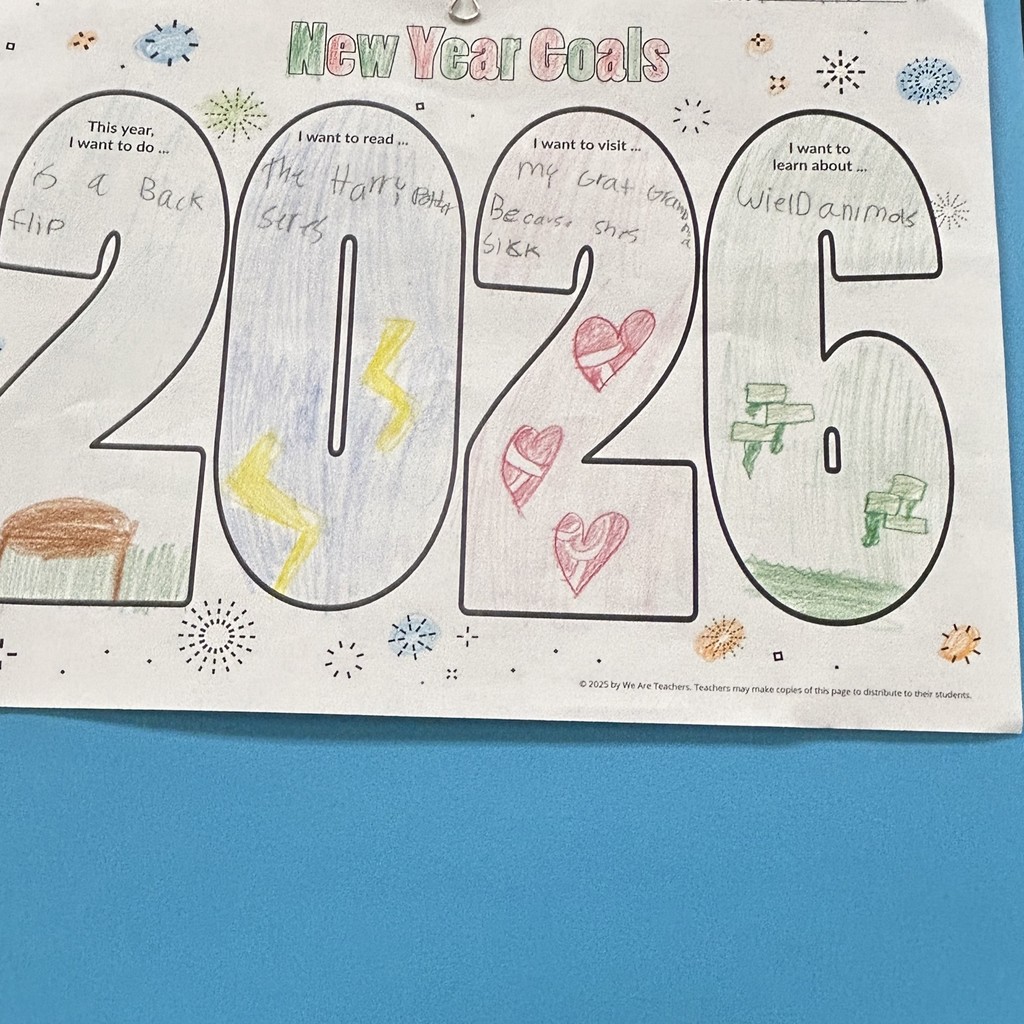 New Year Goals
This year,
I want to do ...
is a Back
flip
I want to read ...
the Harry Potter
seres
I want to visit ...
my Grat Grandma
Because shes
sick
I want to
learn about ...
WielD animals
2026
© 2025 by We Are Teachers. Teachers may make copies of this page to distribute to their students.